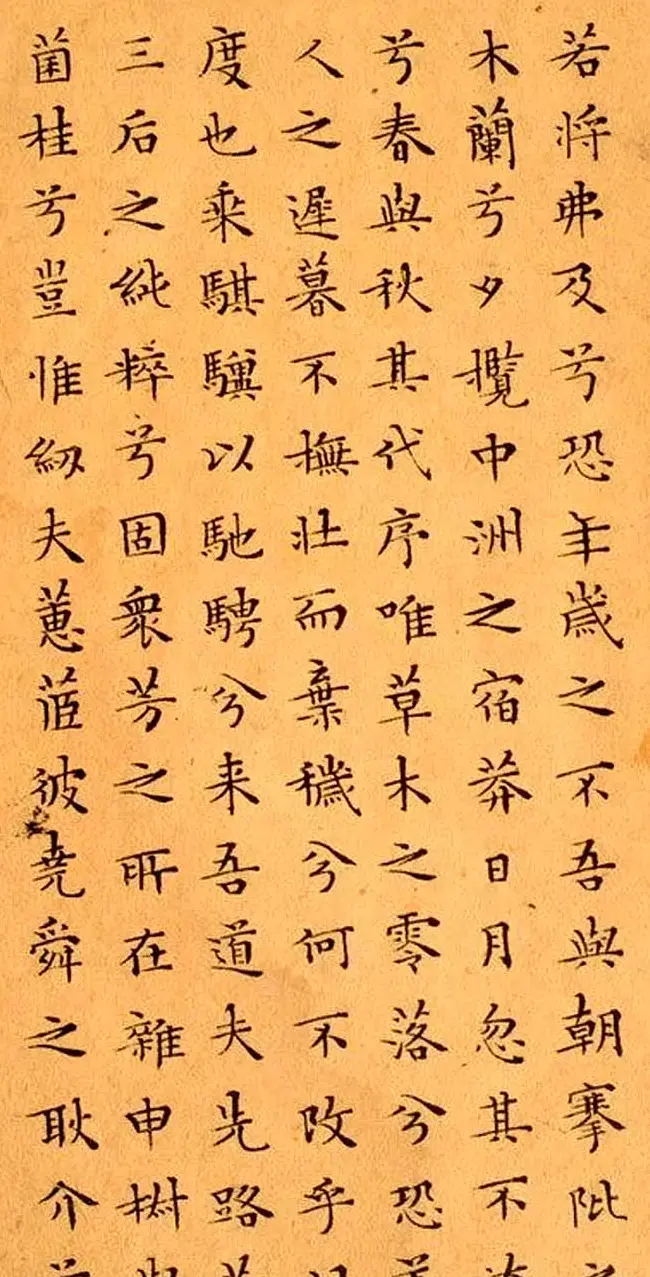 若将弗及兮恐年歲之不吾與朝搴阰之
木蘭兮夕攬中洲之宿莽日月忽其不淹
兮春與秋其代序唯草木之零落兮恐美
人之遲暮不撫壯而棄穢兮何不改乎
度也乘騏驥以馳騁兮来吾道夫先路
三后之純粹兮固衆芳之所在雜申椒
菌桂兮豈惟紉夫蕙茝彼堯舜之耿介